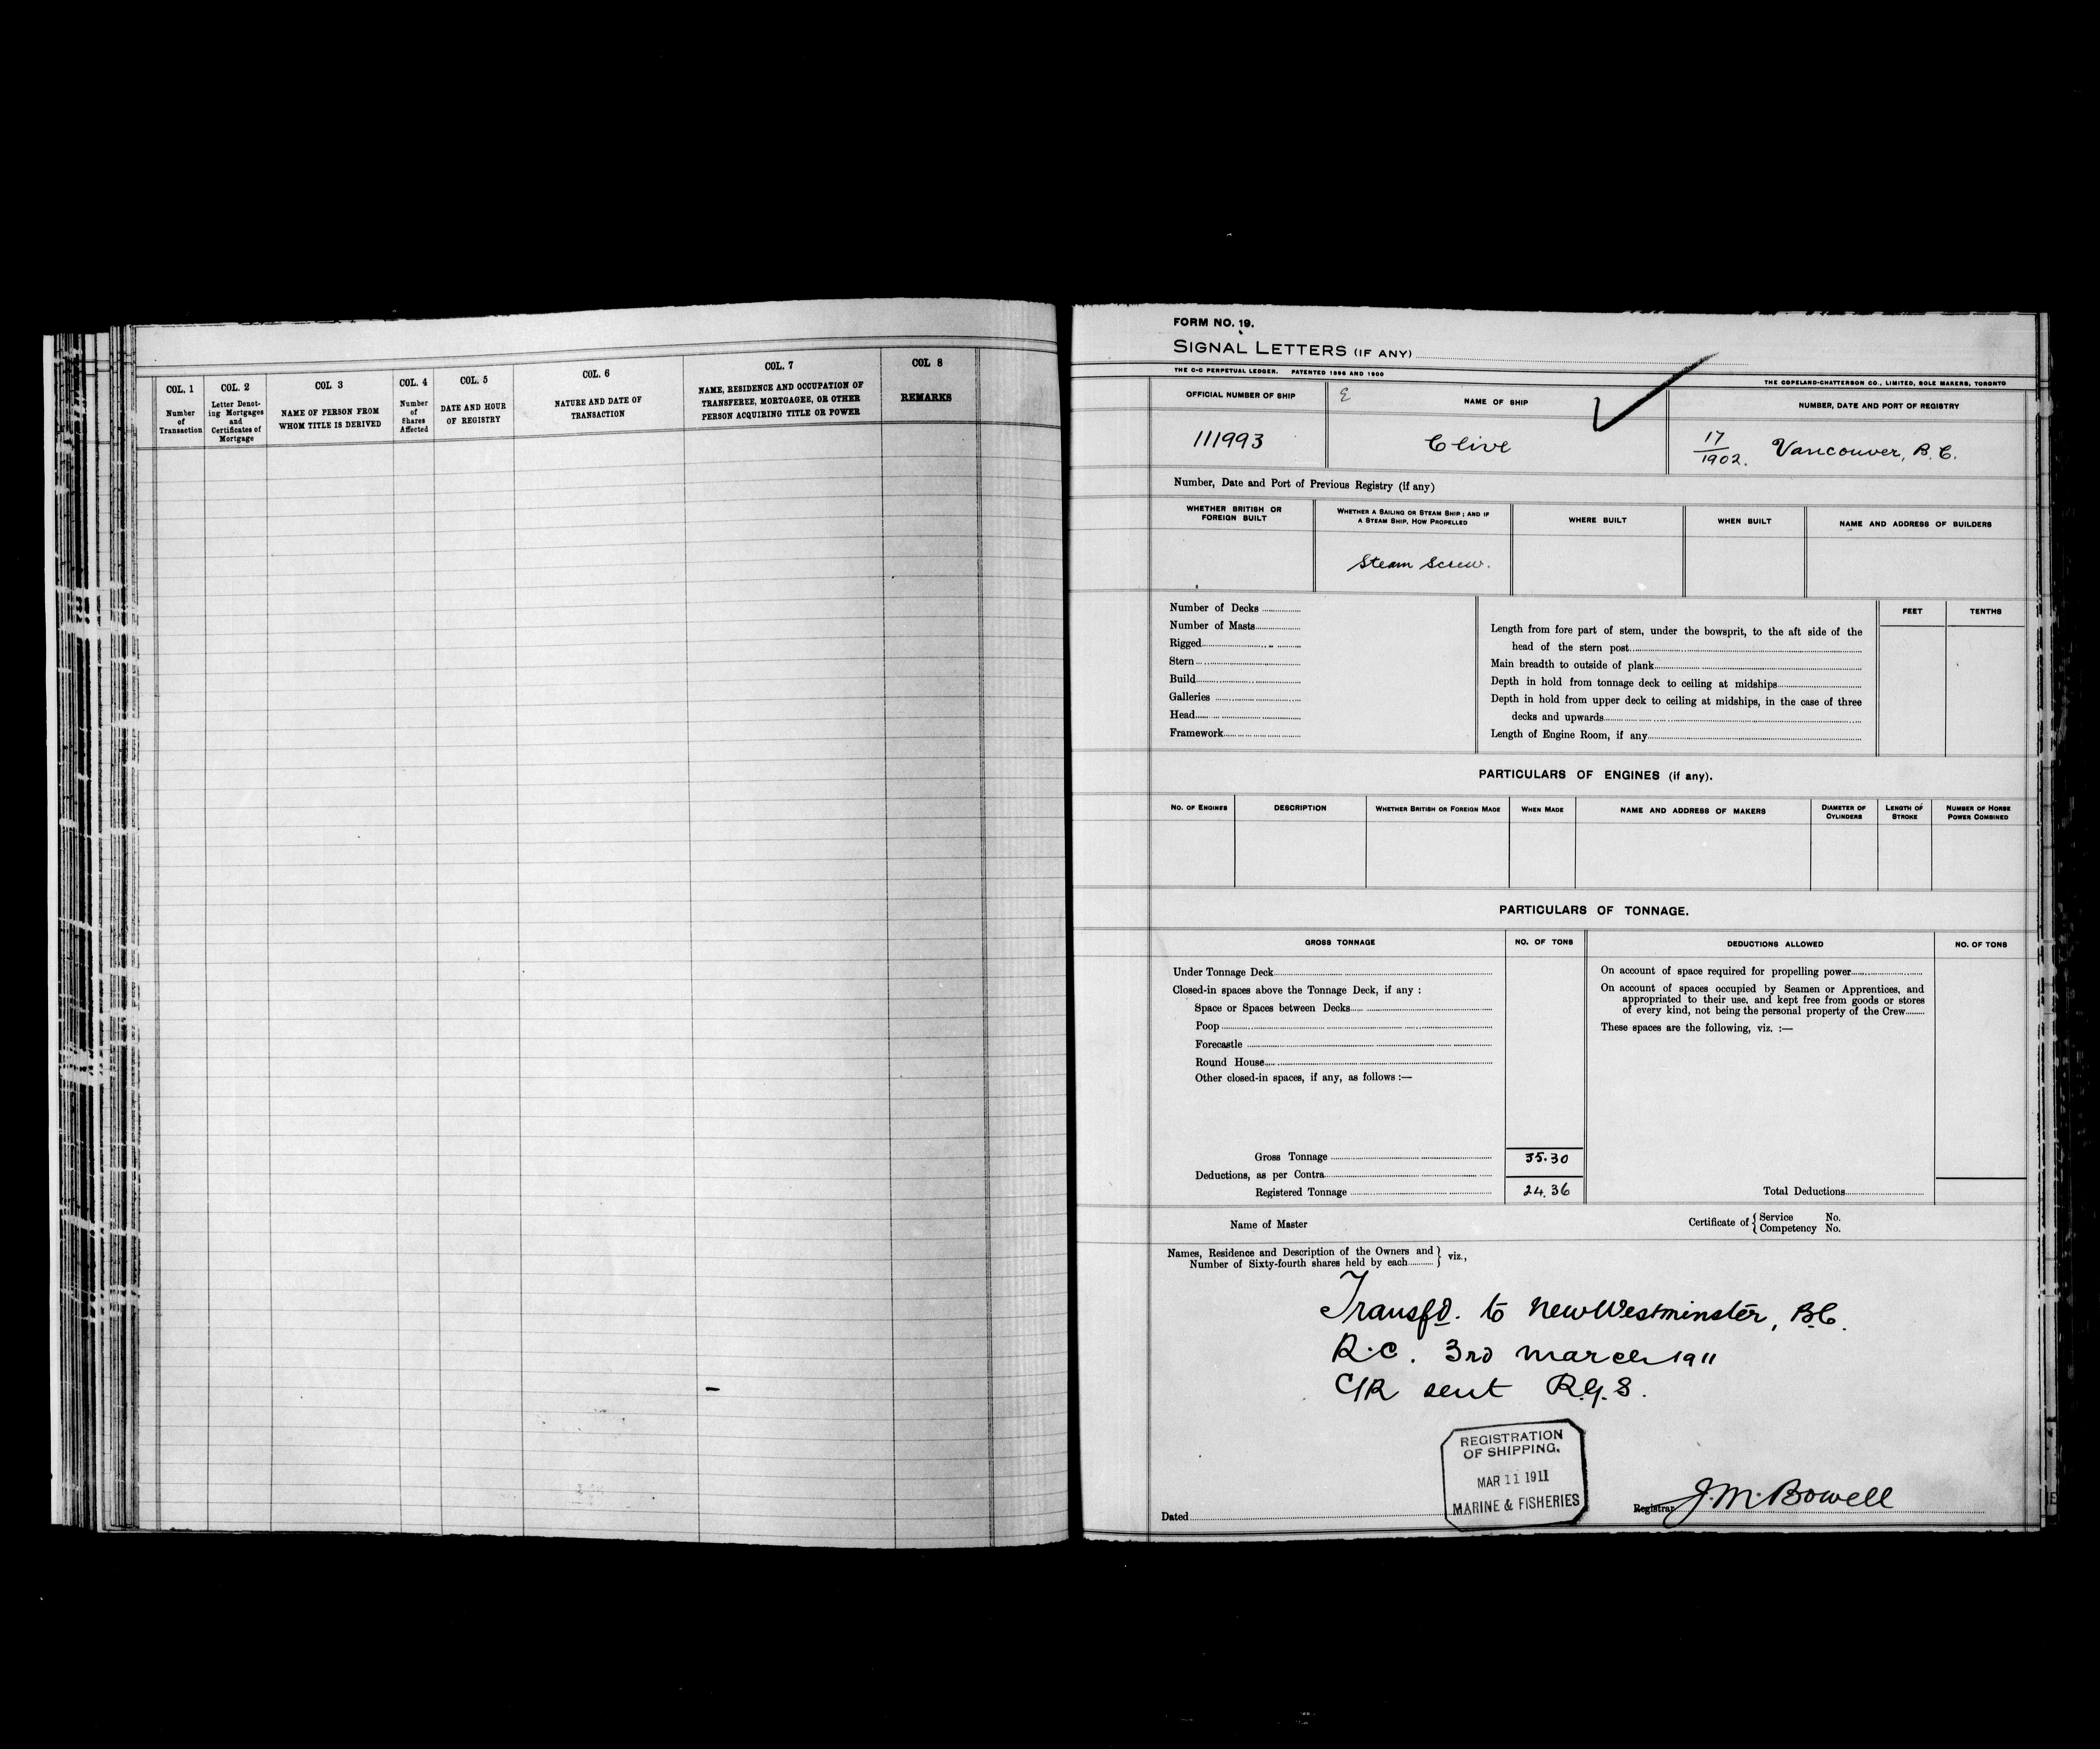 COL. 1
Number
of
Transaction
COL. 2
Letter Denot-
ing Mortgages
and
Certificates of
Mortgage
COL 3
NAME OF PERSON FROM
WHOM TITLE IS DERIVED
COL. 4
Number
of
Shares
Affected
COL. 5
DATE AND HOUR
OF REGISTRY
COL. 6
NATURE AND DATE OF
TRANSACTION
COL. 7
NAME, RESIDENCE AND OCCUPATION OF
TRANSFEREE, MORTGAGEE, OR OTHER
PERSON ACQUIRING TITLE OR POWER
COL 8
REMARKS
FORM NO. 19.
SIGNAL LETTERS (IF ANY)
THE C-C PERPETUAL LEDGER. PATENTED 1896 AND 1900
THE COPELAND-CHATTERSON CO., LIMITED, SOLE MAKERS, TORONTO
OFFICIAL NUMBER OF SHIP
111993
NAME OF SHIP
Clive
NUMBER, DATE AND PORT OF REGISTRY
17
1902. Vancouver, B.C.
Number, Date and Port of Previous Registry (if any)
WHETHER BRITISH OR
FOREIGN BUILT
WHETHER A SAILING OR STEAM SHIP; AND IF
A STEAM SHIP, HOW PROPELLED
Steam Screw.
WHERE BUILT
WHEN BUILT
NAME AND ADDRESS OF BUILDERS
Number of Decks
Number of Masts
Rigged
Stern
Build
Galleries
Head
Framework
FEET
TENTHS
Length from fore part of stem, under the bowsprit, to the aft side of the
head of the stern post
Main breadth to outside of plank
Depth in hold from tonnage deck to ceiling at midships
Depth in hold from upper deck to ceiling at midships, in the case of three
decks and upwards
Length of Engine Room, if any
PARTICULARS OF ENGINES (if any).
NO. OF ENGINES
DESCRIPTION
WHETHER BRITISH OR FOREIGN MADE
WHEN MADE
NAME AND ADDRESS OF MAKERS
DIAMETER OF
CYLINDERS
LENGTH OF
STROKE
NUMBER OF HORSE
POWER COMBINED
PARTICULARS OF TONNAGE.
GROSS TONNAGE
NO. OF TONS
DEDUCTIONS ALLOWED
NO. OF TONS
Under Tonnage Deck
Closed-in spaces above the Tonnage Deck, if any :
Space or Spaces between Decks
Poop
Forecastle
Round House
Other closed-in spaces, if any, as follows :—
Gross Tonnage 35.30
Deductions, as per Contra
Registered Tonnage 24.36
On account of space required for propelling power
On account of spaces occupied by Seamen or Apprentices, and
appropriated to their use, and kept free from goods or stores
of every kind, not being the personal property of the Crew
These spaces are the following, viz. :—
Total Deductions
Name of Master
Certificate of { Service No.
Competency No.
Names, Residence and Description of the Owners and } viz.,
Number of Sixty-fourth shares held by each
Transfd. to New Westminster, B.C.
R.C. 3rd March 1911
C/R sent R.G.S.
REGISTRATION
OF SHIPPING.
MAR 11 1911
MARINE & FISHERIES
Dated
Registrar J. M. Bowell